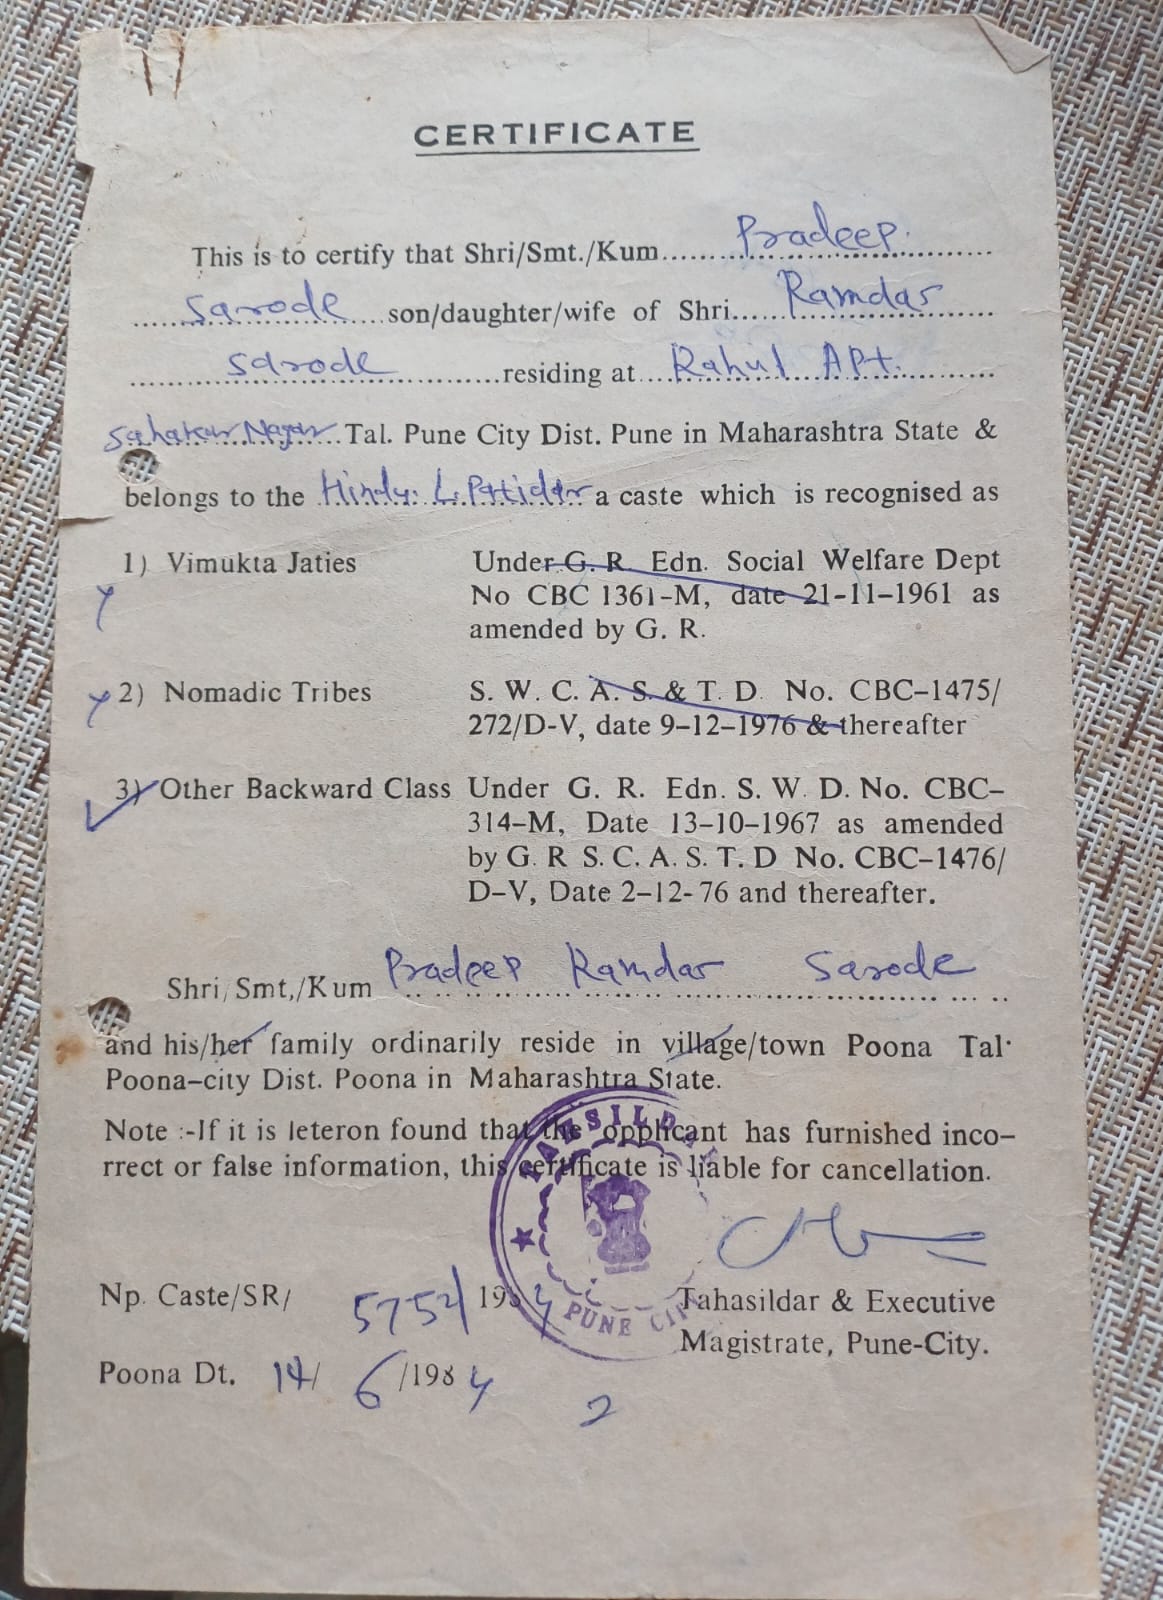 CERTIFICATE
This is to certify that Shri/Smt./Kum.......Pradeep.......
.......Sarode.......son/daughter/wife of Shri.....Ramdas.......
.......Sarode.......residing at....Rahul Apt........
Sahakar Nagar...Tal. Pune City Dist. Pune in Maharashtra State &
belongs to the Hindu: L. Pattidar a caste which is recognised as
1) Vimukta Jaties Under G. R. Edn. Social Welfare Dept
No CBC 1361-M, date 21-11-1961 as
amended by G. R.
2) Nomadic Tribes S. W. C. A. S. & T. D. No. CBC-1475/
272/D-V, date 9-12-1976 & thereafter
3) Other Backward Class Under G. R. Edn. S. W. D. No. CBC-
314-M, Date 13-10-1967 as amended
by G. R S. C. A. S. T. D No. CBC-1476/
D-V, Date 2-12-76 and thereafter.
Shri/Smt,/Kum Pradeep Ramdas Sarode
and his/her family ordinarily reside in village/town Poona Tal.
Poona-city Dist. Poona in Maharashtra State.
Note :-If it is leteron found that the opplicant has furnished inco-
rrect or false information, this certificate is liable for cancellation.
PUNE CITY
Np. Caste/SR/ 5752/1984 Tahasildar & Executive
Magistrate, Pune-City.
Poona Dt. 14/6/1984
2